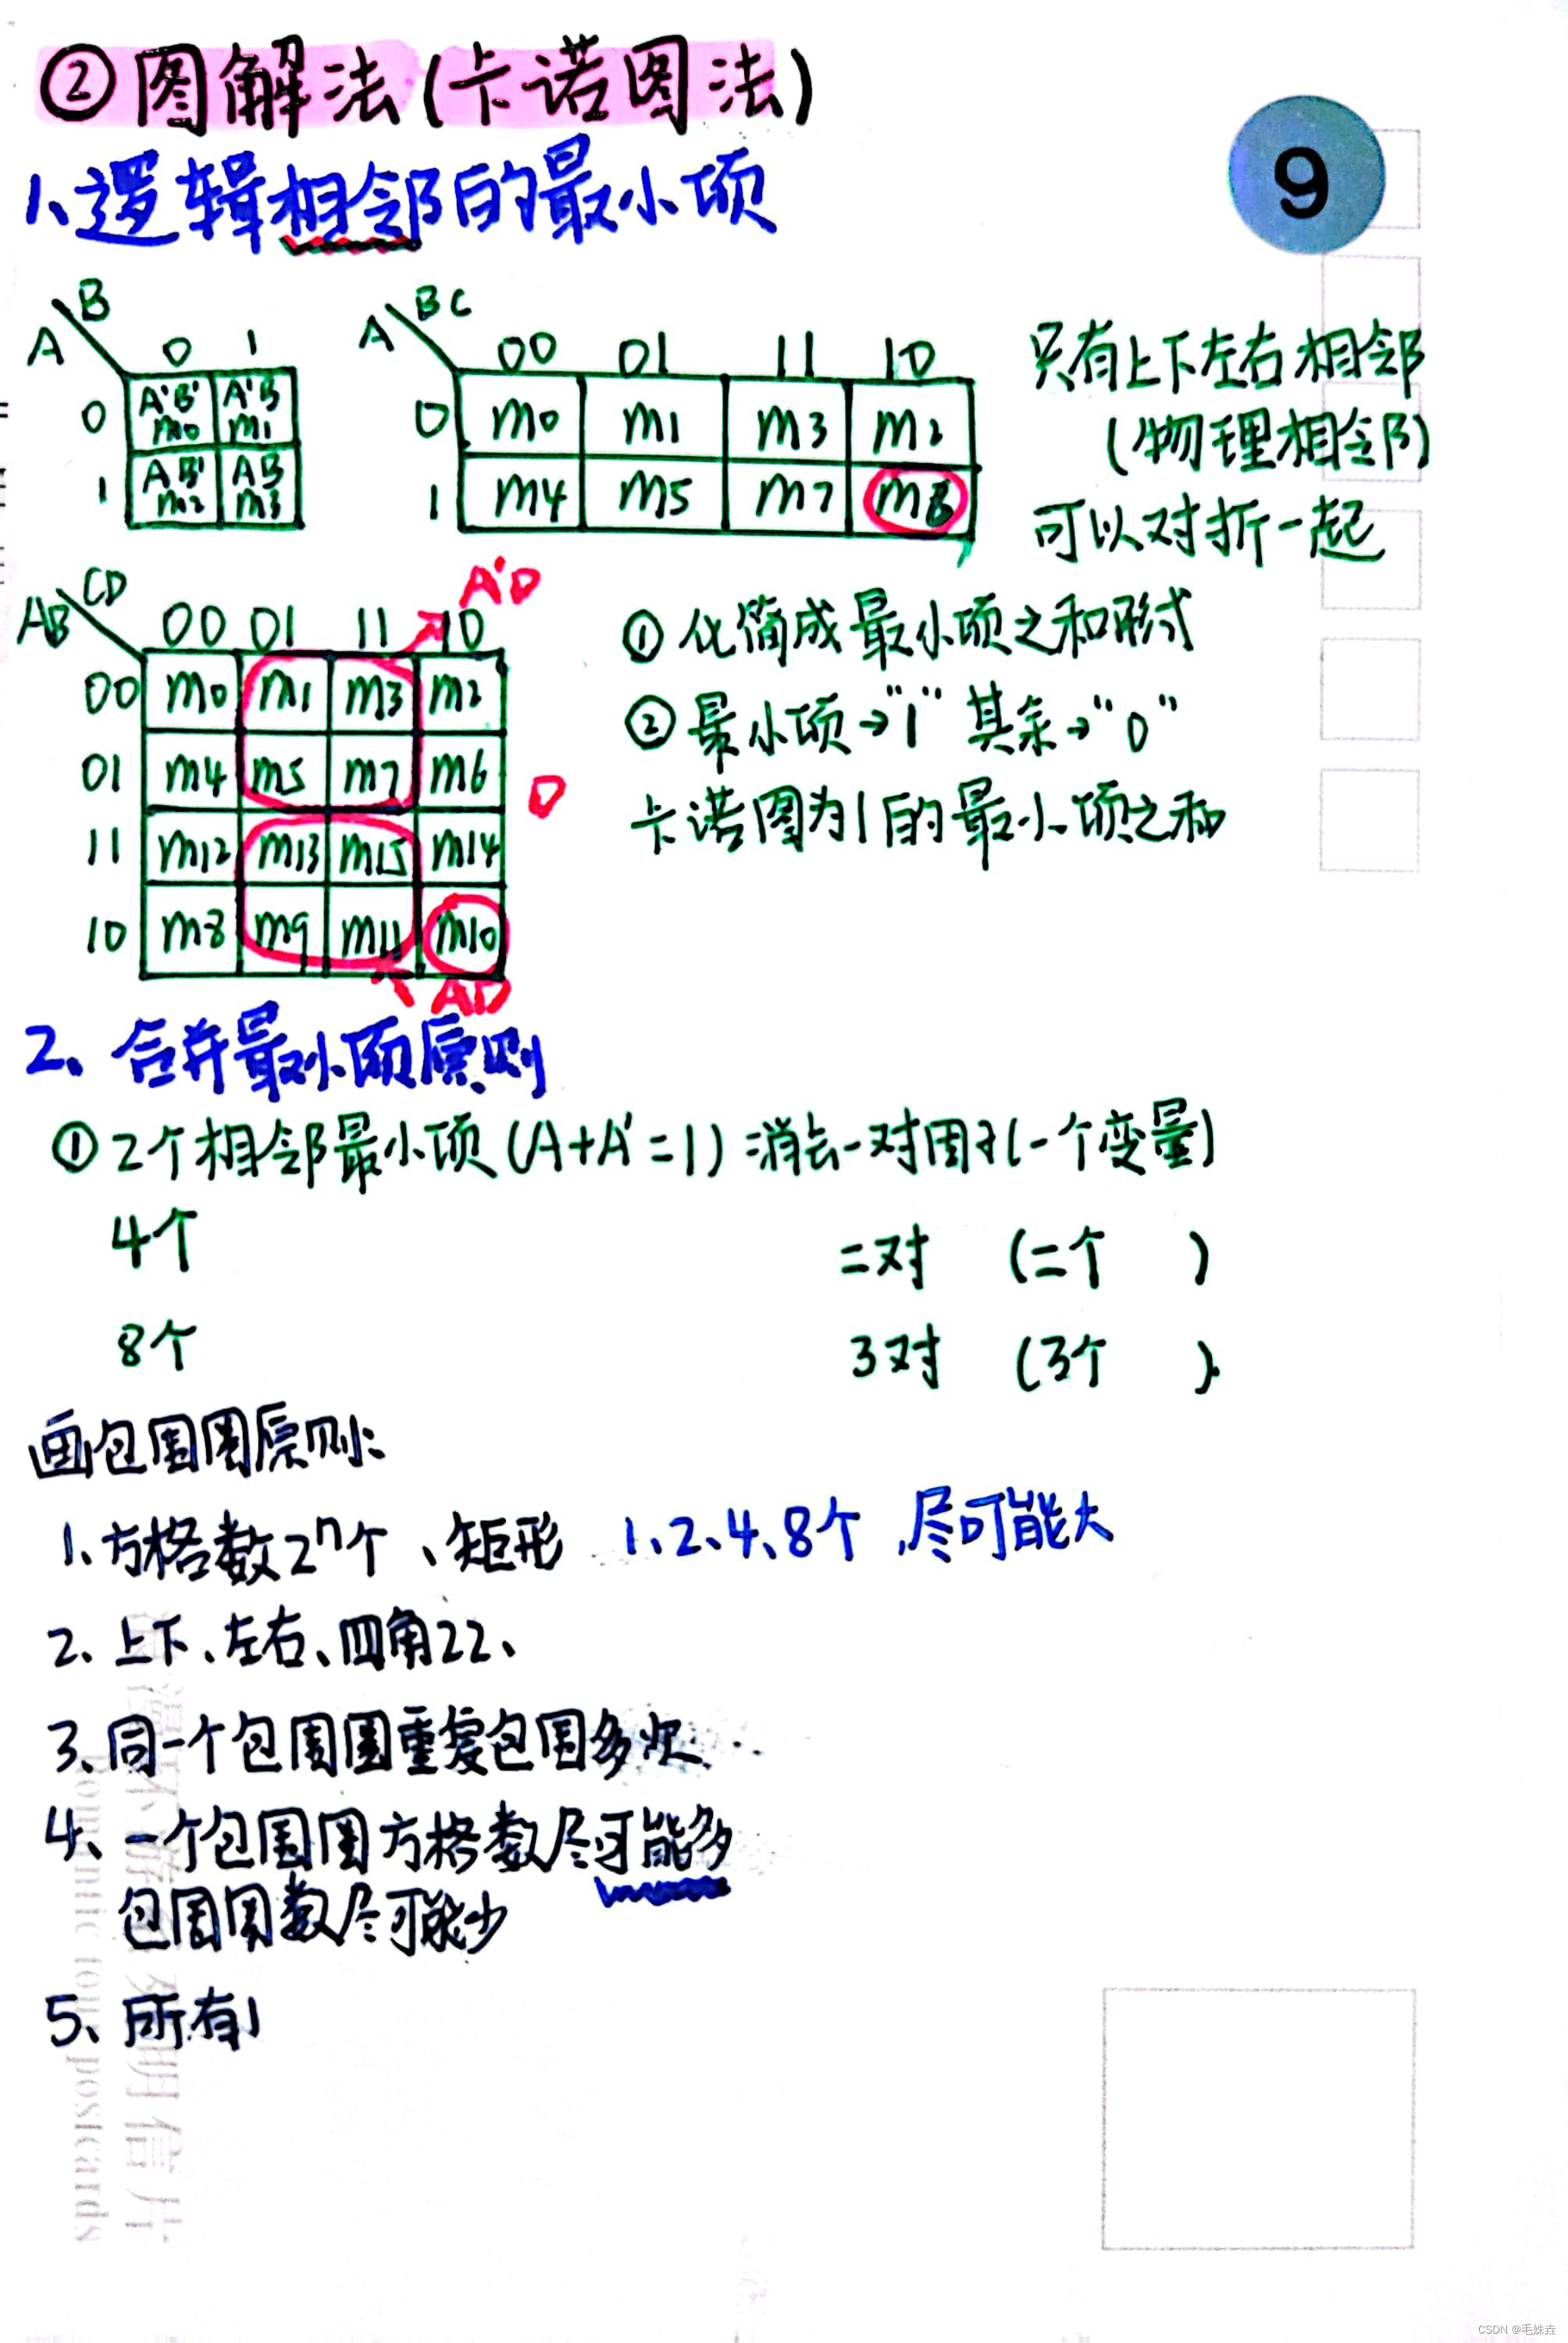 ②图解法(卡诺图法)
9
1、逻辑相邻的最小项
A B 0 1
0 A'B' m0 A'B m1
1 AB' m2 AB m3
A BC 00 01 11 10
0 m0 m1 m3 m2
1 m4 m5 m7
只有上下左右相邻
(物理相邻)
可以对折一起
A'D
AB CD 00 01 11 10
00 m0 m1 m3 m2
01 m4 m5 m7 m6
11 m12 m13 m15 m14
10 m8 m9 m11 m10
D
AD
①化简成最小项之和形式
②最小项→"1" 其余→"0"
卡诺图为1的最小项之和
2、合并最小项原则
①2个相邻最小项(A+A'=1)消去一对因子(一个变量)
4个 二对 (二个 )
8个 3对 (3个 )
画包围圈原则:
1、方格数2ⁿ个、矩形 1、2、4、8个,尽可能大
2、上下、左右、四角22、
3、同一个包围圈重复包围多次
4、一个包围圈方格数尽可能多
包围圈数尽可能少
5、所有1
明信片
postcards
CSDN @毛姝垚